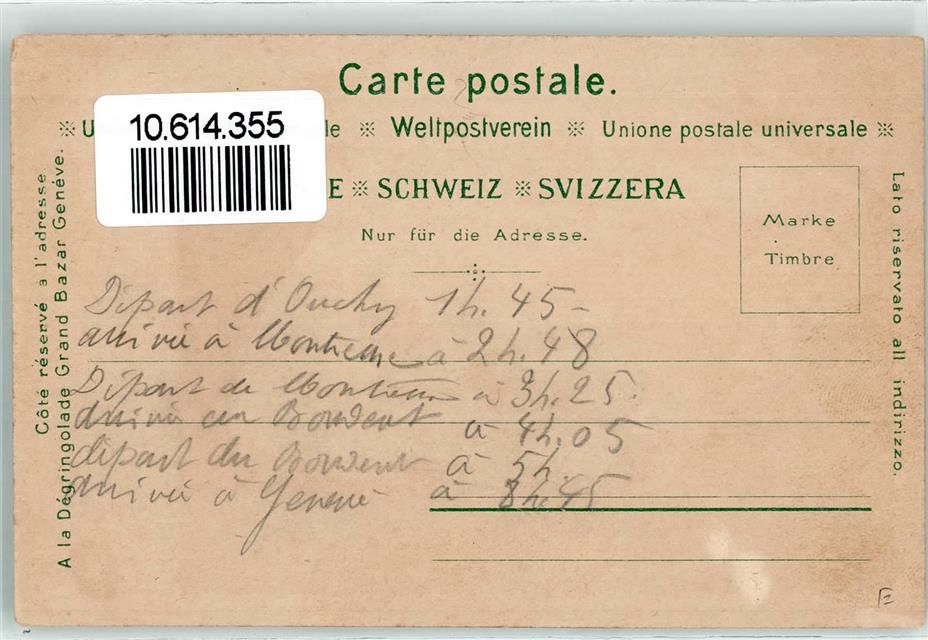 Carte postale.
10.614.355
※ U le ※ Weltpostverein ※ Unione postale universale ※
E ※ SCHWEIZ ※ SVIZZERA
Nur für die Adresse.
Marke
Timbre
Côté réservé à l'adresse.
A la Dégringolade Grand Bazar Genève.
Lato riservato all indirizzo.
Départ d'Ouchy 1h. 45 -
arrivée à Montreux à 2h. 48
Départ de Montreux à 3h. 25.
arrivée au Bouveret à 4h. 05
départ du Bouveret à 5h.
arrivée à Genève à 8h. 45
E